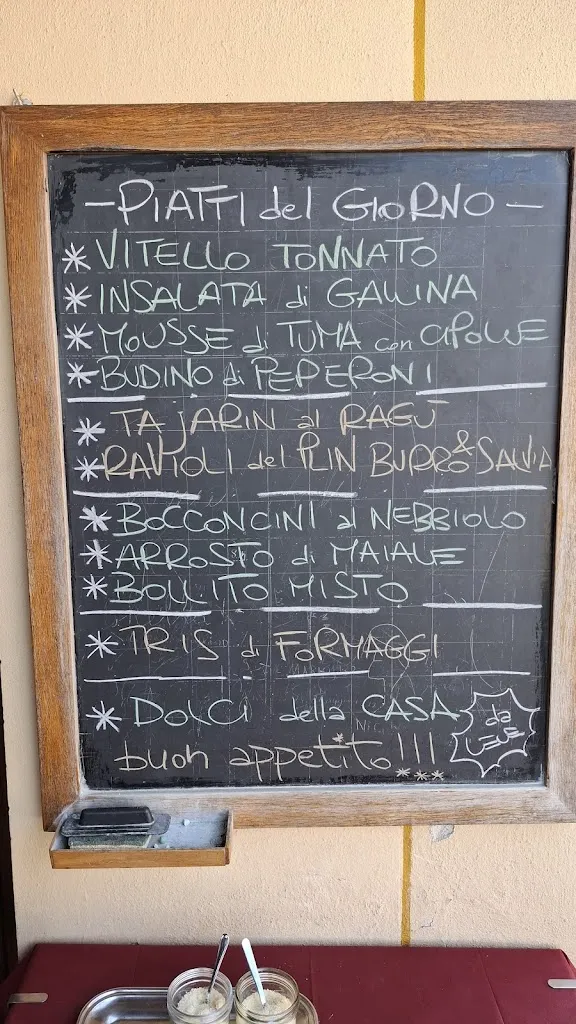 - PIATTI del GIORNO -
* VITELLO TONNATO
* INSALATA di GALLINA
* MOUSSE di TUMA con CIPOLLE
* BUDINO di PEPERONI
* TAJARIN al RAGÙ
* RAVIOLI del PLIN BURRO & SALVIA
* BOCCONCINI al NEBBIOLO
* ARROSTO di MAIALE
* BOLLITO MISTO
* TRIS di FORMAGGI
* DOLCI della CASA
da
buon appetito!!!